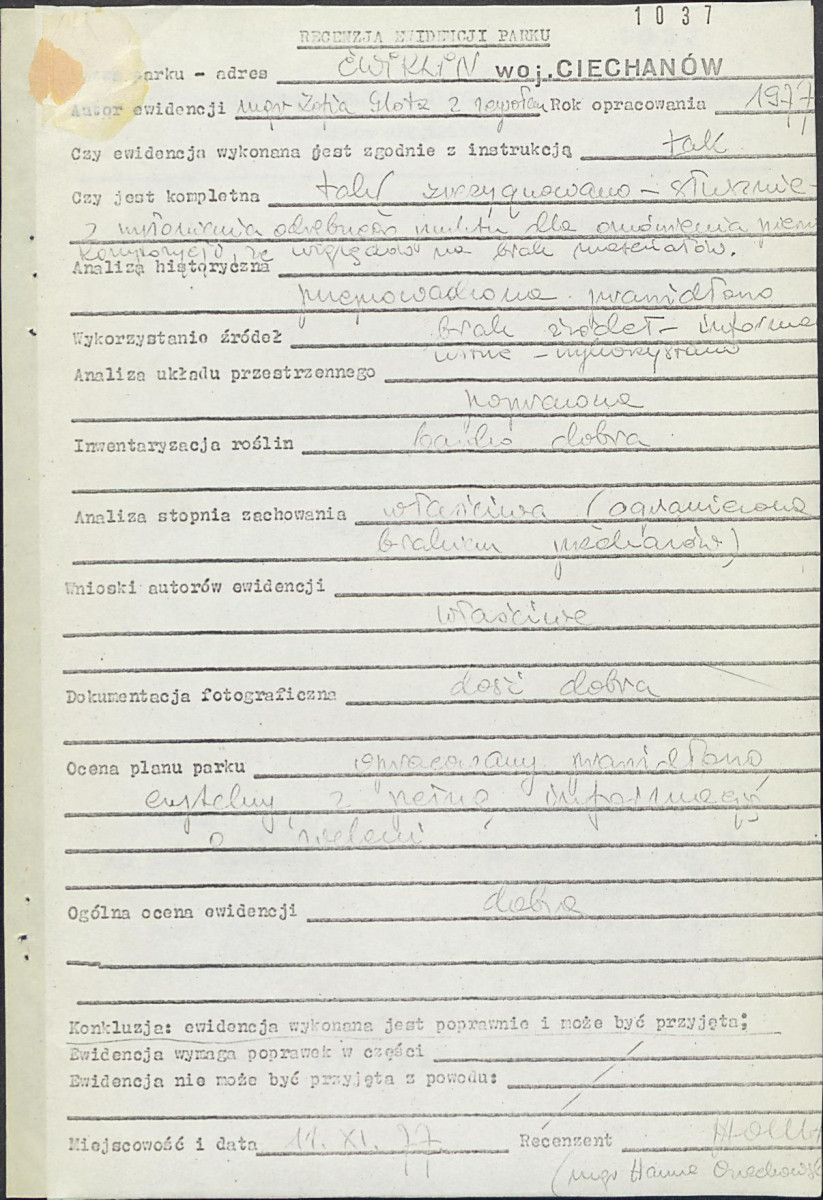 1037
RECENZJA EWIDENCJI PARKU
parku - adres ĆWIKLIN woj. CIECHANÓW
Autor ewidencji mgr Zofia Glotz z zespołem Rok opracowania 1977
Czy ewidencja wykonana jest zgodnie z instrukcją tak
Czy jest kompletna tak/ zrezygnowano - słusznie -
z wyłonienia odrębnego punktu dla omówienia
kompozycji, ze względów na brak materiałów.
Analiza historyczna
przeprowadzona prawidłowo
Wykorzystanie źródeł brak źródeł - informa
ustne - wykorzystano
Analiza układu przestrzennego
poprawna
Inwentaryzacja roślin bardzo dobra
Analiza stopnia zachowania właściwa (ograniczona
brakiem przekazów)
Wnioski autorów ewidencji
właściwe
Dokumentacja fotograficzna dość dobra
Ocena planu parku opracowany prawidłowo,
czytelny, z pełną informacją
o zieleni
Ogólna ocena ewidencji dobra
Konkluzja: ewidencja wykonana jest poprawnie i może być przyjęta;
Ewidencja wymaga poprawek w części
Ewidencja nie może być przyjęta z powodu:
Miejscowość i data 14. XI. 77 Recenzent
(mgr Hanna